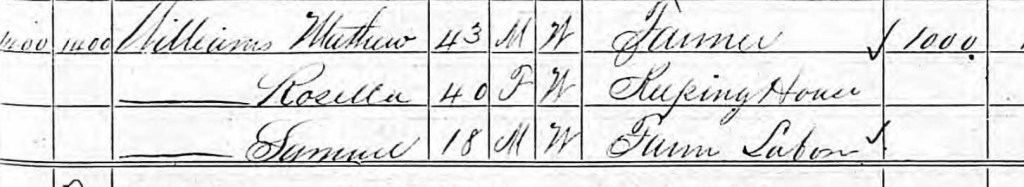 1400 1400 Williams Mathew 43 M W Farmer 1000
—— Rosella 40 F W Keeping House
—— Samuel 18 M W Farm Labor